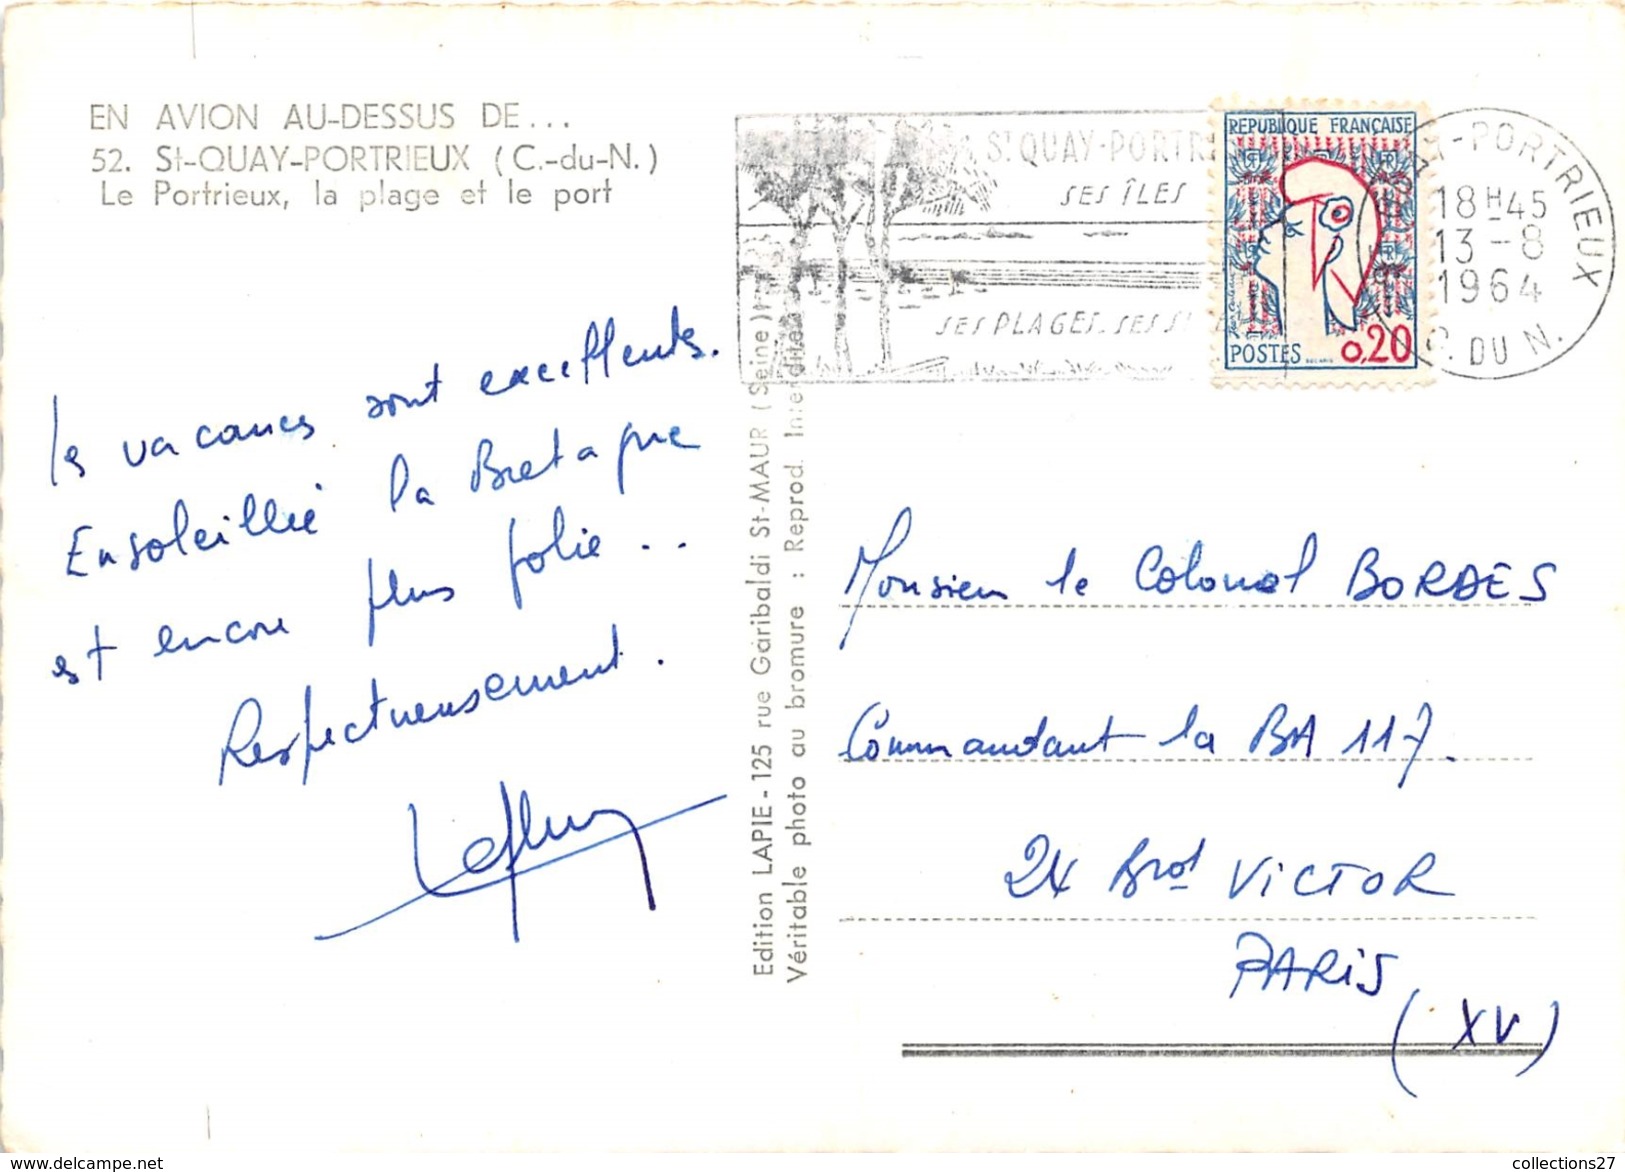 EN AVION AU-DESSUS DE...
52. St-QUAY-PORTRIEUX (C.-du-N.)
Le Portrieux, la plage et le port
les vacances sont excellentes.
Ensoleillée la Bretagne
est encore plus jolie..
Respectueusement.
Edition LAPIE - 125 rue Garibaldi St-MAUR (Seine)
Véritable photo au bromure : Reprod. Interdite
ST QUAY-PORTR
SES ÎLES
SES PLAGES. SES S
REPUBLIQUE FRANÇAISE
POSTES 0,20
T-PORTRIEUX
18H45
13 -8
1964
C. DU N.
Monsieur le Colonel BORDES
Commandant la BA 117.
24 Bvd VICTOR
PARIS
(XV)
collections27